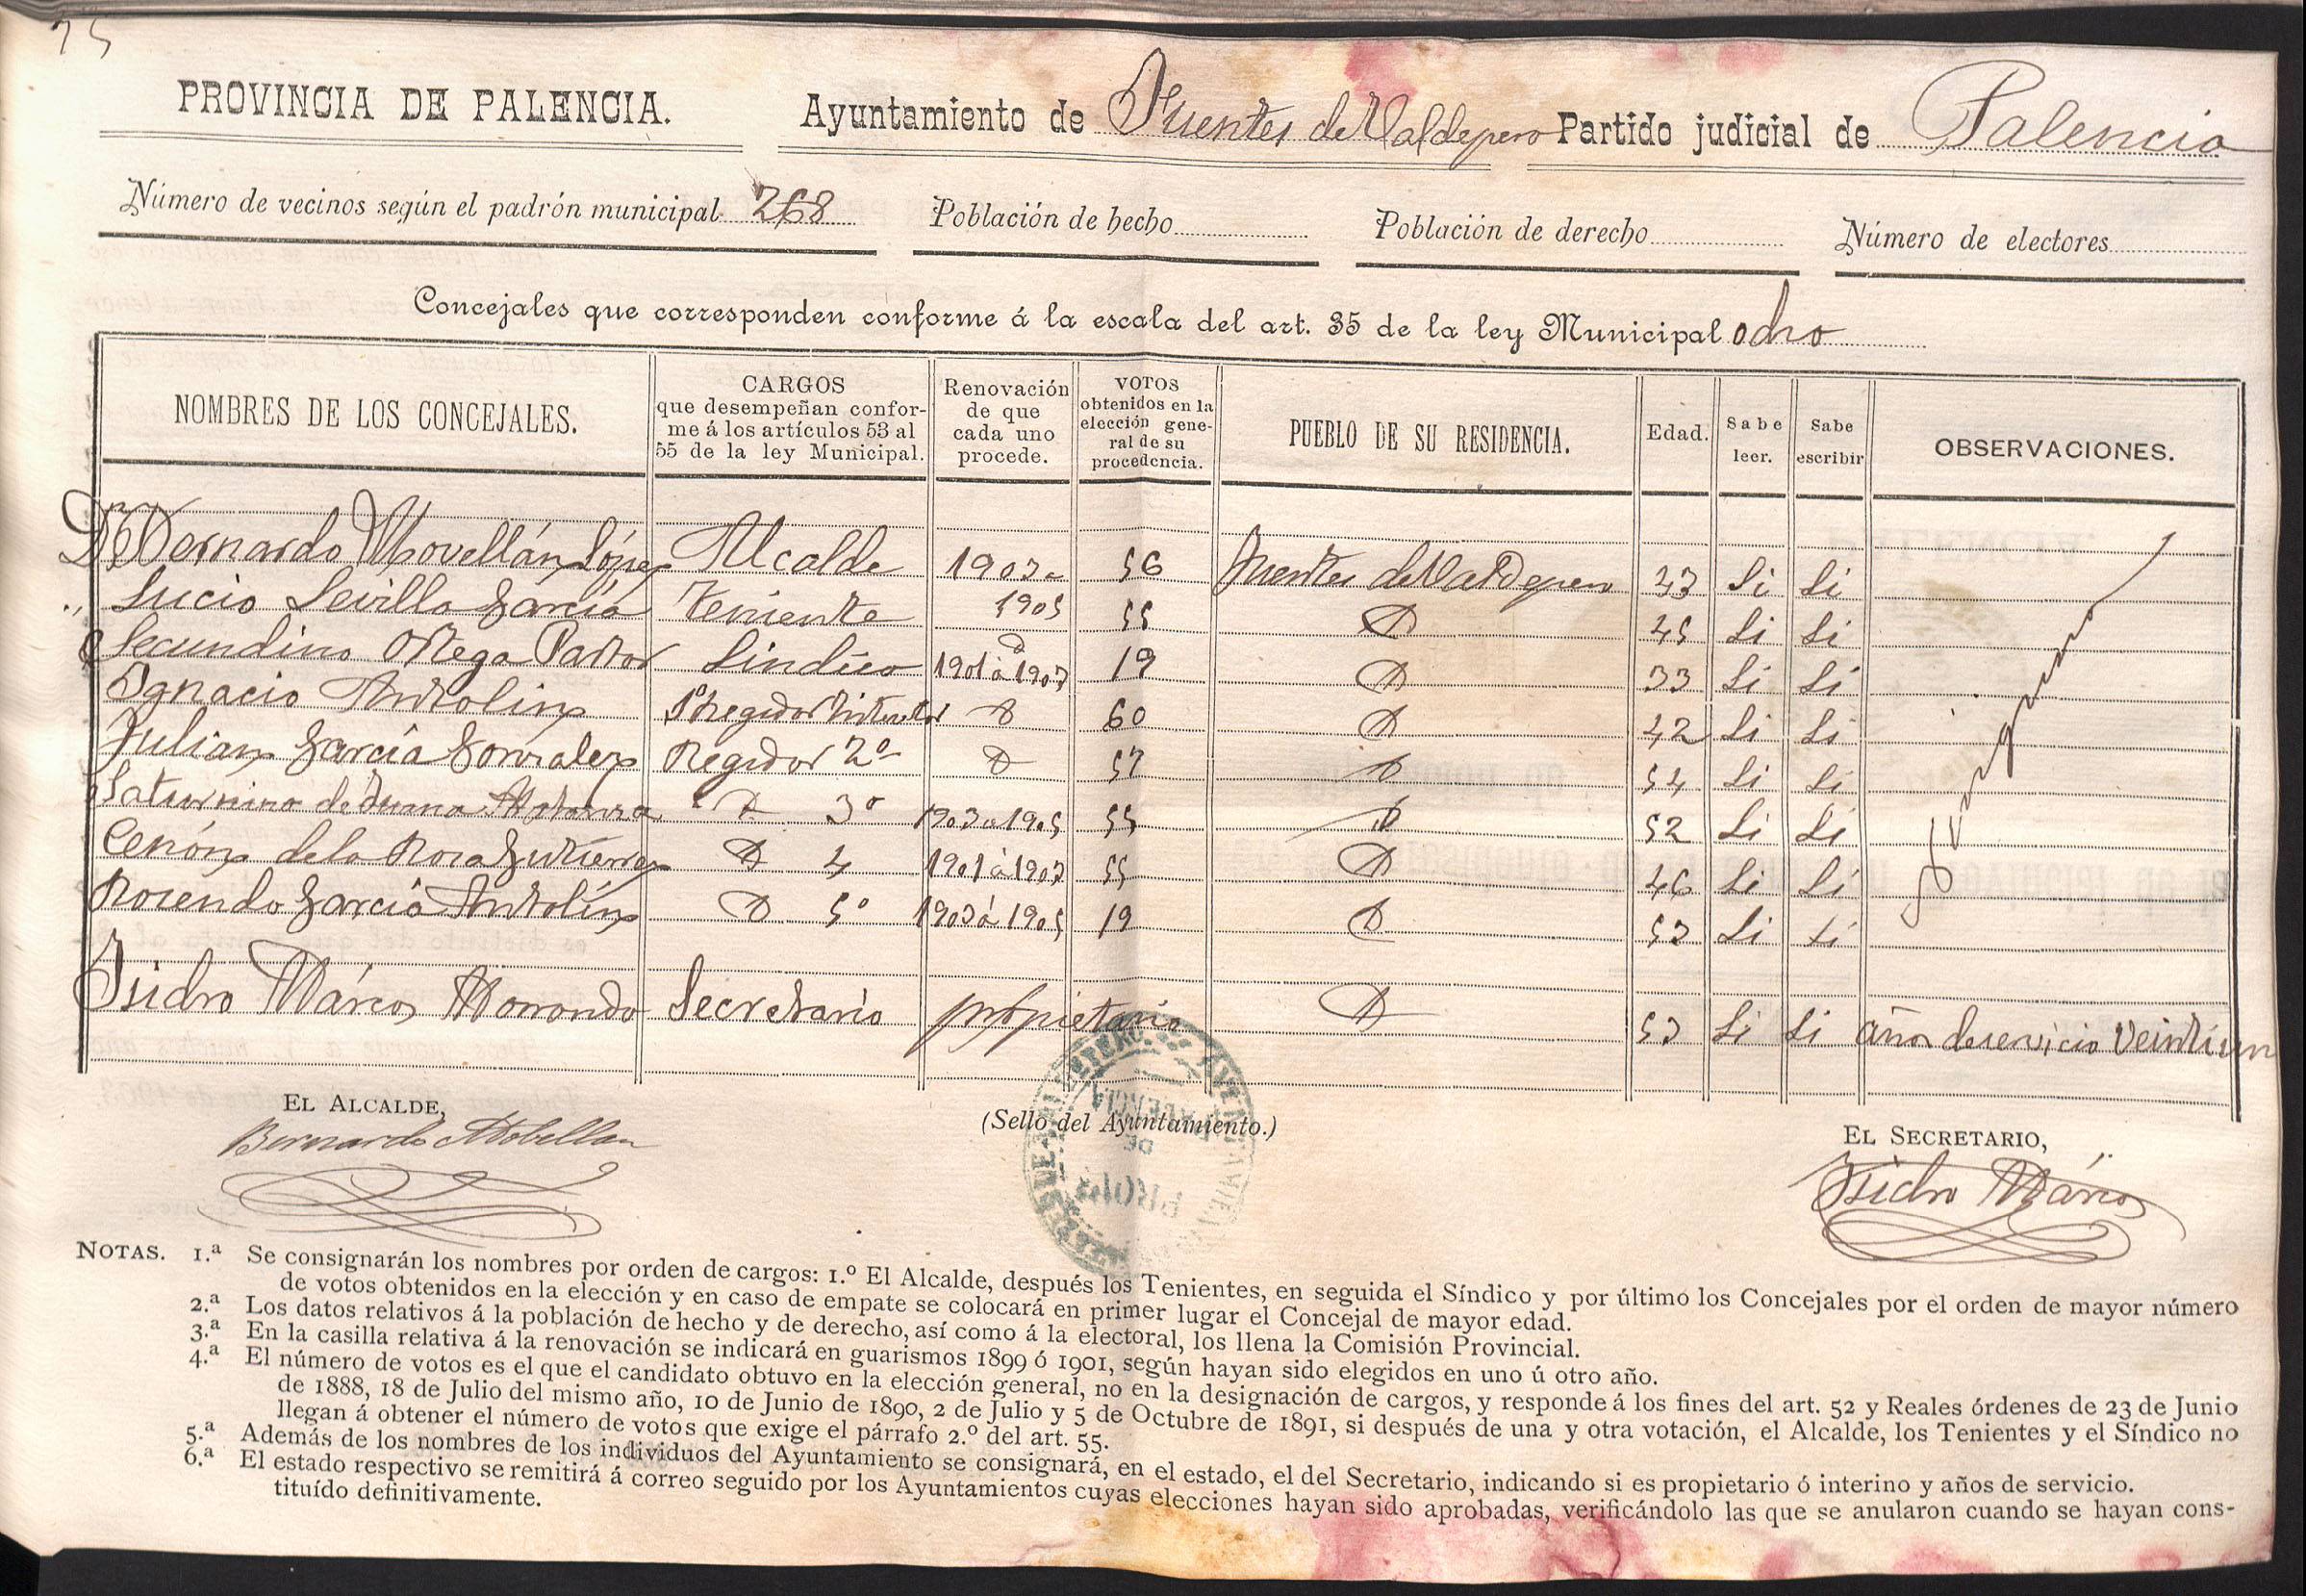 75
PROVINCIA DE PALENCIA. Ayuntamiento de Fuentes de Valdepero Partido judicial de Palencia
Número de vecinos según el padrón municipal 268 Población de hecho Población de derecho Número de electores
Concejales que corresponden conforme á la escala del art. 35 de la ley Municipal ocho
NOMBRES DE LOS CONCEJALES.
CARGOS
que desempeñan confor-
me á los artículos 53 al
55 de la ley Municipal.
Renovación
de que
cada uno
procede.
VOTOS
obtenidos en la
elección gene-
ral de su
procedencia.
PUEBLO DE SU RESIDENCIA.
Edad.
Sabe
leer.
Sabe
escribir
OBSERVACIONES.
Dn Bernardo Movellán López Alcalde 1903 a 56 Fuentes de Valdepero 43 Si Si
Lucio Sevilla García Teniente 1905 55 D 45 Si Si
Secundino Ortega Pastor Sindico 1901 á 1903 19 D 33 Si Si
Ignacio Antolín D 60 D 42 Si Si
Julian García González Regidor 2º D 57 D 54 Si Si
Saturnino de D 3º 1903 a 1905 55 D 52 Si Si
Cenón de la Rosa Gutierrez D 4 1901 á 1903 55 D 46 Si Si
Rosendo García Antolín D 5º 1903 á 1905 19 D 53 Si Si
Ninguna
Isidro Márcos Secretario propietario D 53 Si Si años de servicio veintiun
EL ALCALDE,
Bernardo Mobellan
(Sello del Ayuntamiento.)
EL SECRETARIO,
Isidro Márcos
NOTAS. 1.ª Se consignarán los nombres por orden de cargos: 1.º El Alcalde, después los Tenientes, en seguida el Síndico y por último los Concejales por el orden de mayor número
de votos obtenidos en la elección y en caso de empate se colocará en primer lugar el Concejal de mayor edad.
2.ª Los datos relativos á la población de hecho y de derecho, así como á la electoral, los llena la Comisión Provincial.
3.ª En la casilla relativa á la renovación se indicará en guarismos 1899 ó 1901, según hayan sido elegidos en uno ú otro año.
4.ª El número de votos es el que el candidato obtuvo en la elección general, no en la designación de cargos, y responde á los fines del art. 52 y Reales órdenes de 23 de Junio
de 1888, 18 de Julio del mismo año, 10 de Junio de 1890, 2 de Julio y 5 de Octubre de 1891, si después de una y otra votación, el Alcalde, los Tenientes y el Síndico no
llegan á obtener el número de votos que exige el párrafo 2.º del art. 55.
5.ª Además de los nombres de los individuos del Ayuntamiento se consignará, en el estado, el del Secretario, indicando si es propietario ó interino y años de servicio.
6.ª El estado respectivo se remitirá á correo seguido por los Ayuntamientos cuyas elecciones hayan sido aprobadas, verificándolo las que se anularon cuando se hayan cons-
tituído definitivamente.